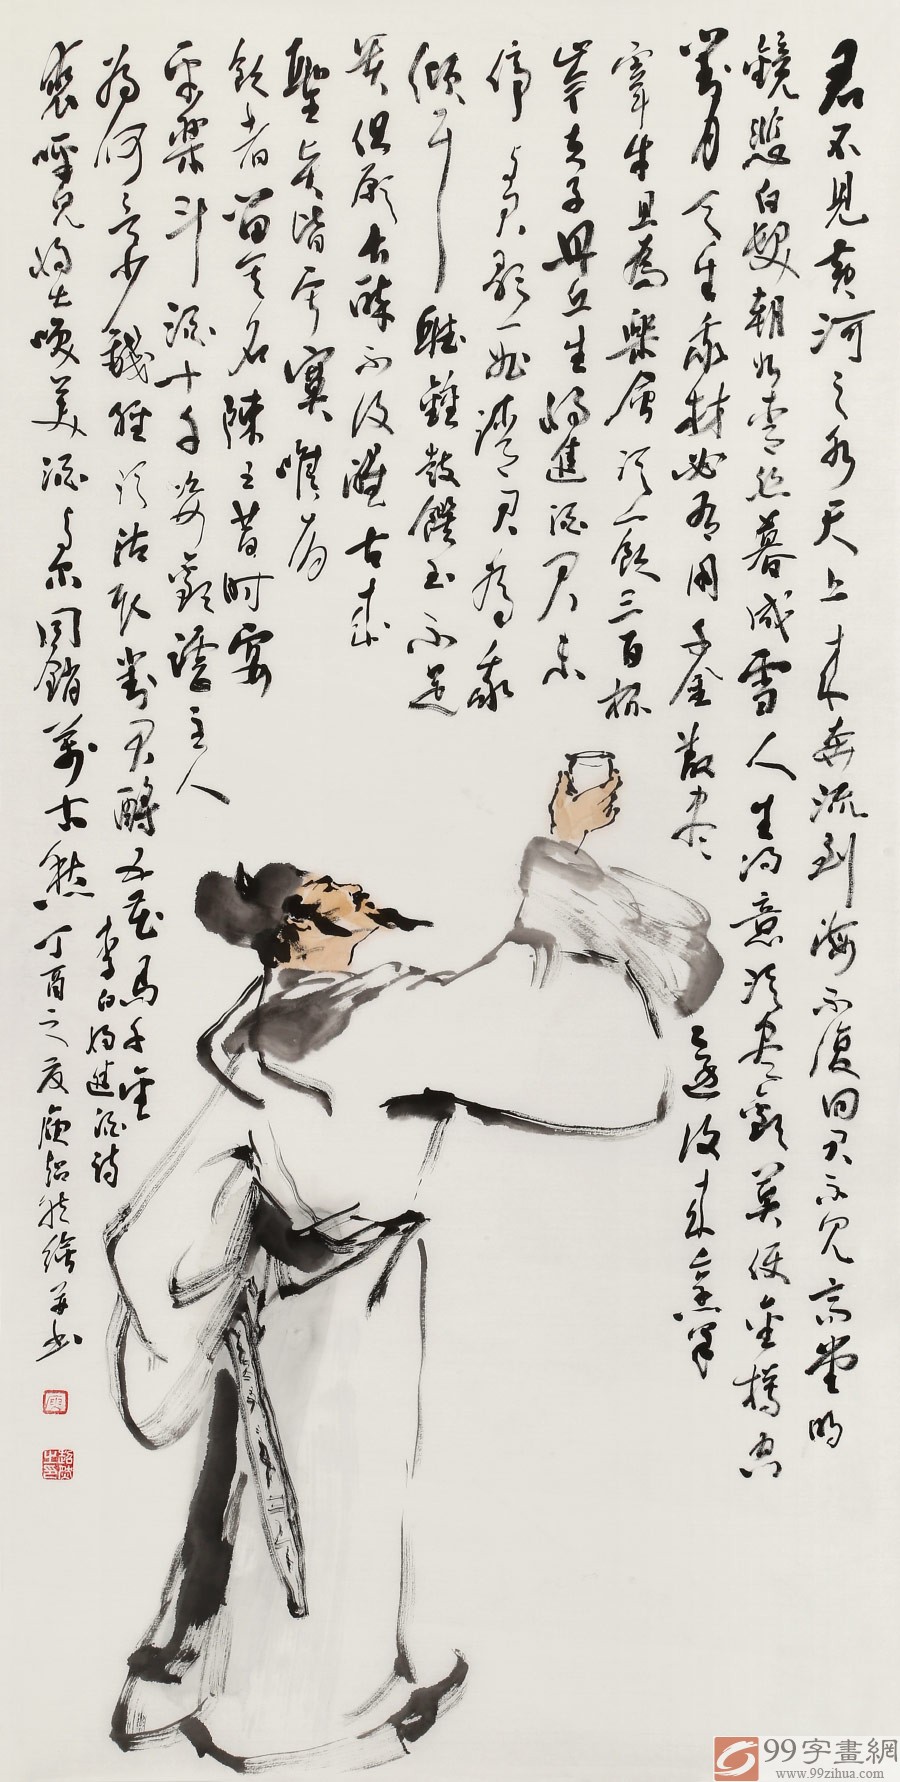 君不见黄河之水天上来奔流到海不復回君不见高堂明
鏡悲白髮朝如青丝暮成雪人生得意须尽歡莫使金樽空
對月天生我材必有用千金散尽還復来烹羊
宰牛且為樂會须一飲三百杯
岑夫子丹丘生將進酒君未
停與君歌一曲請君為我
傾耳聽鐘鼓饌玉不足
貴但願長醉不復醒古来
聖賢皆寂寞惟有
飲者留其名陳王昔时宴
平樂斗酒十千恣歡謔主人
為何言少錢徑须沽取對君酌五花馬千金
裘呼兒將出换美酒與尔同銷萬古愁
李白將進酒诗
丁酉之夏庾超然繪并书
99字畫網
www.99zihua.com